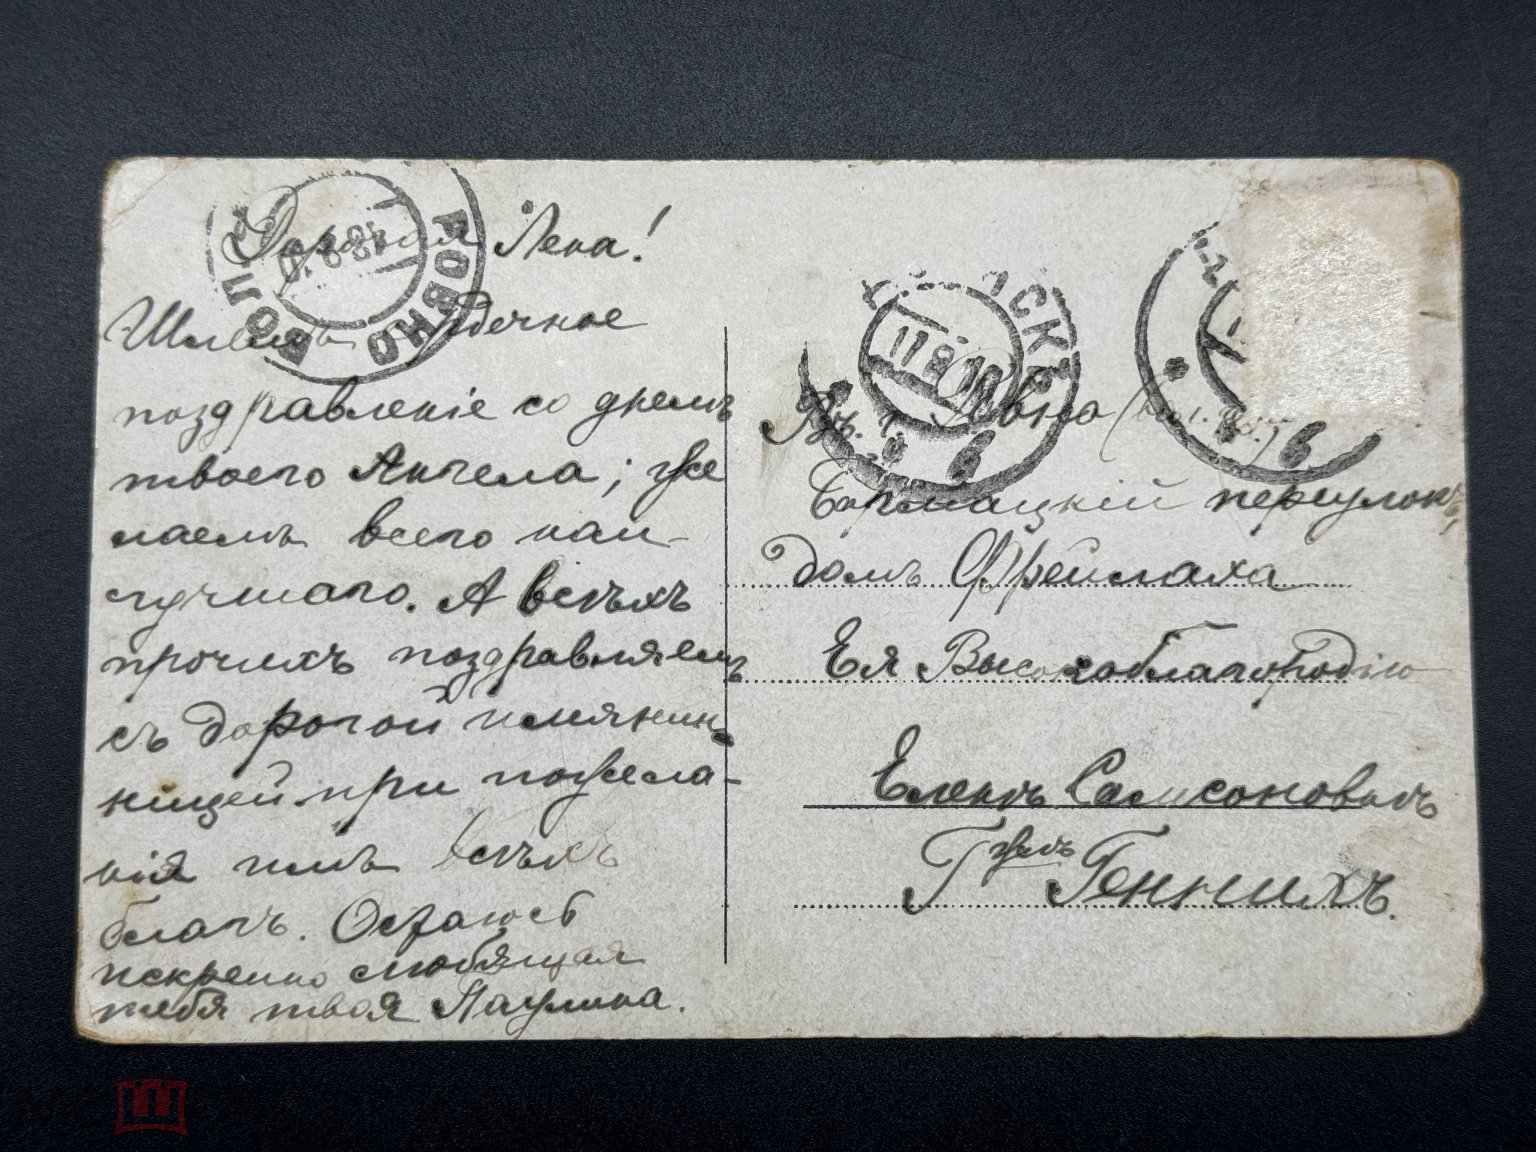 Дорогая Лена!
Шлемъ сердечное
поздравленіе со днемъ
твоего Ангела; же
лаемъ всего наи-
лучшаго. А всѣхъ
прочихъ поздравляемъ
съ дорогой имянин-
ницей при пожела-
нія имъ всѣхъ
благъ. Остаюсь
искренно любящая
тебя твоя Паулина.
РОВНО ВОЛ.
18.8.10
СКЪ
11 8 10
6
6
Въ г. Ровно (
Бармацкій переулокъ,
домъ Фрейлаха
Ея Высокоблагородію
Еленѣ Самсоновнѣ
Гжѣ Геннихъ.